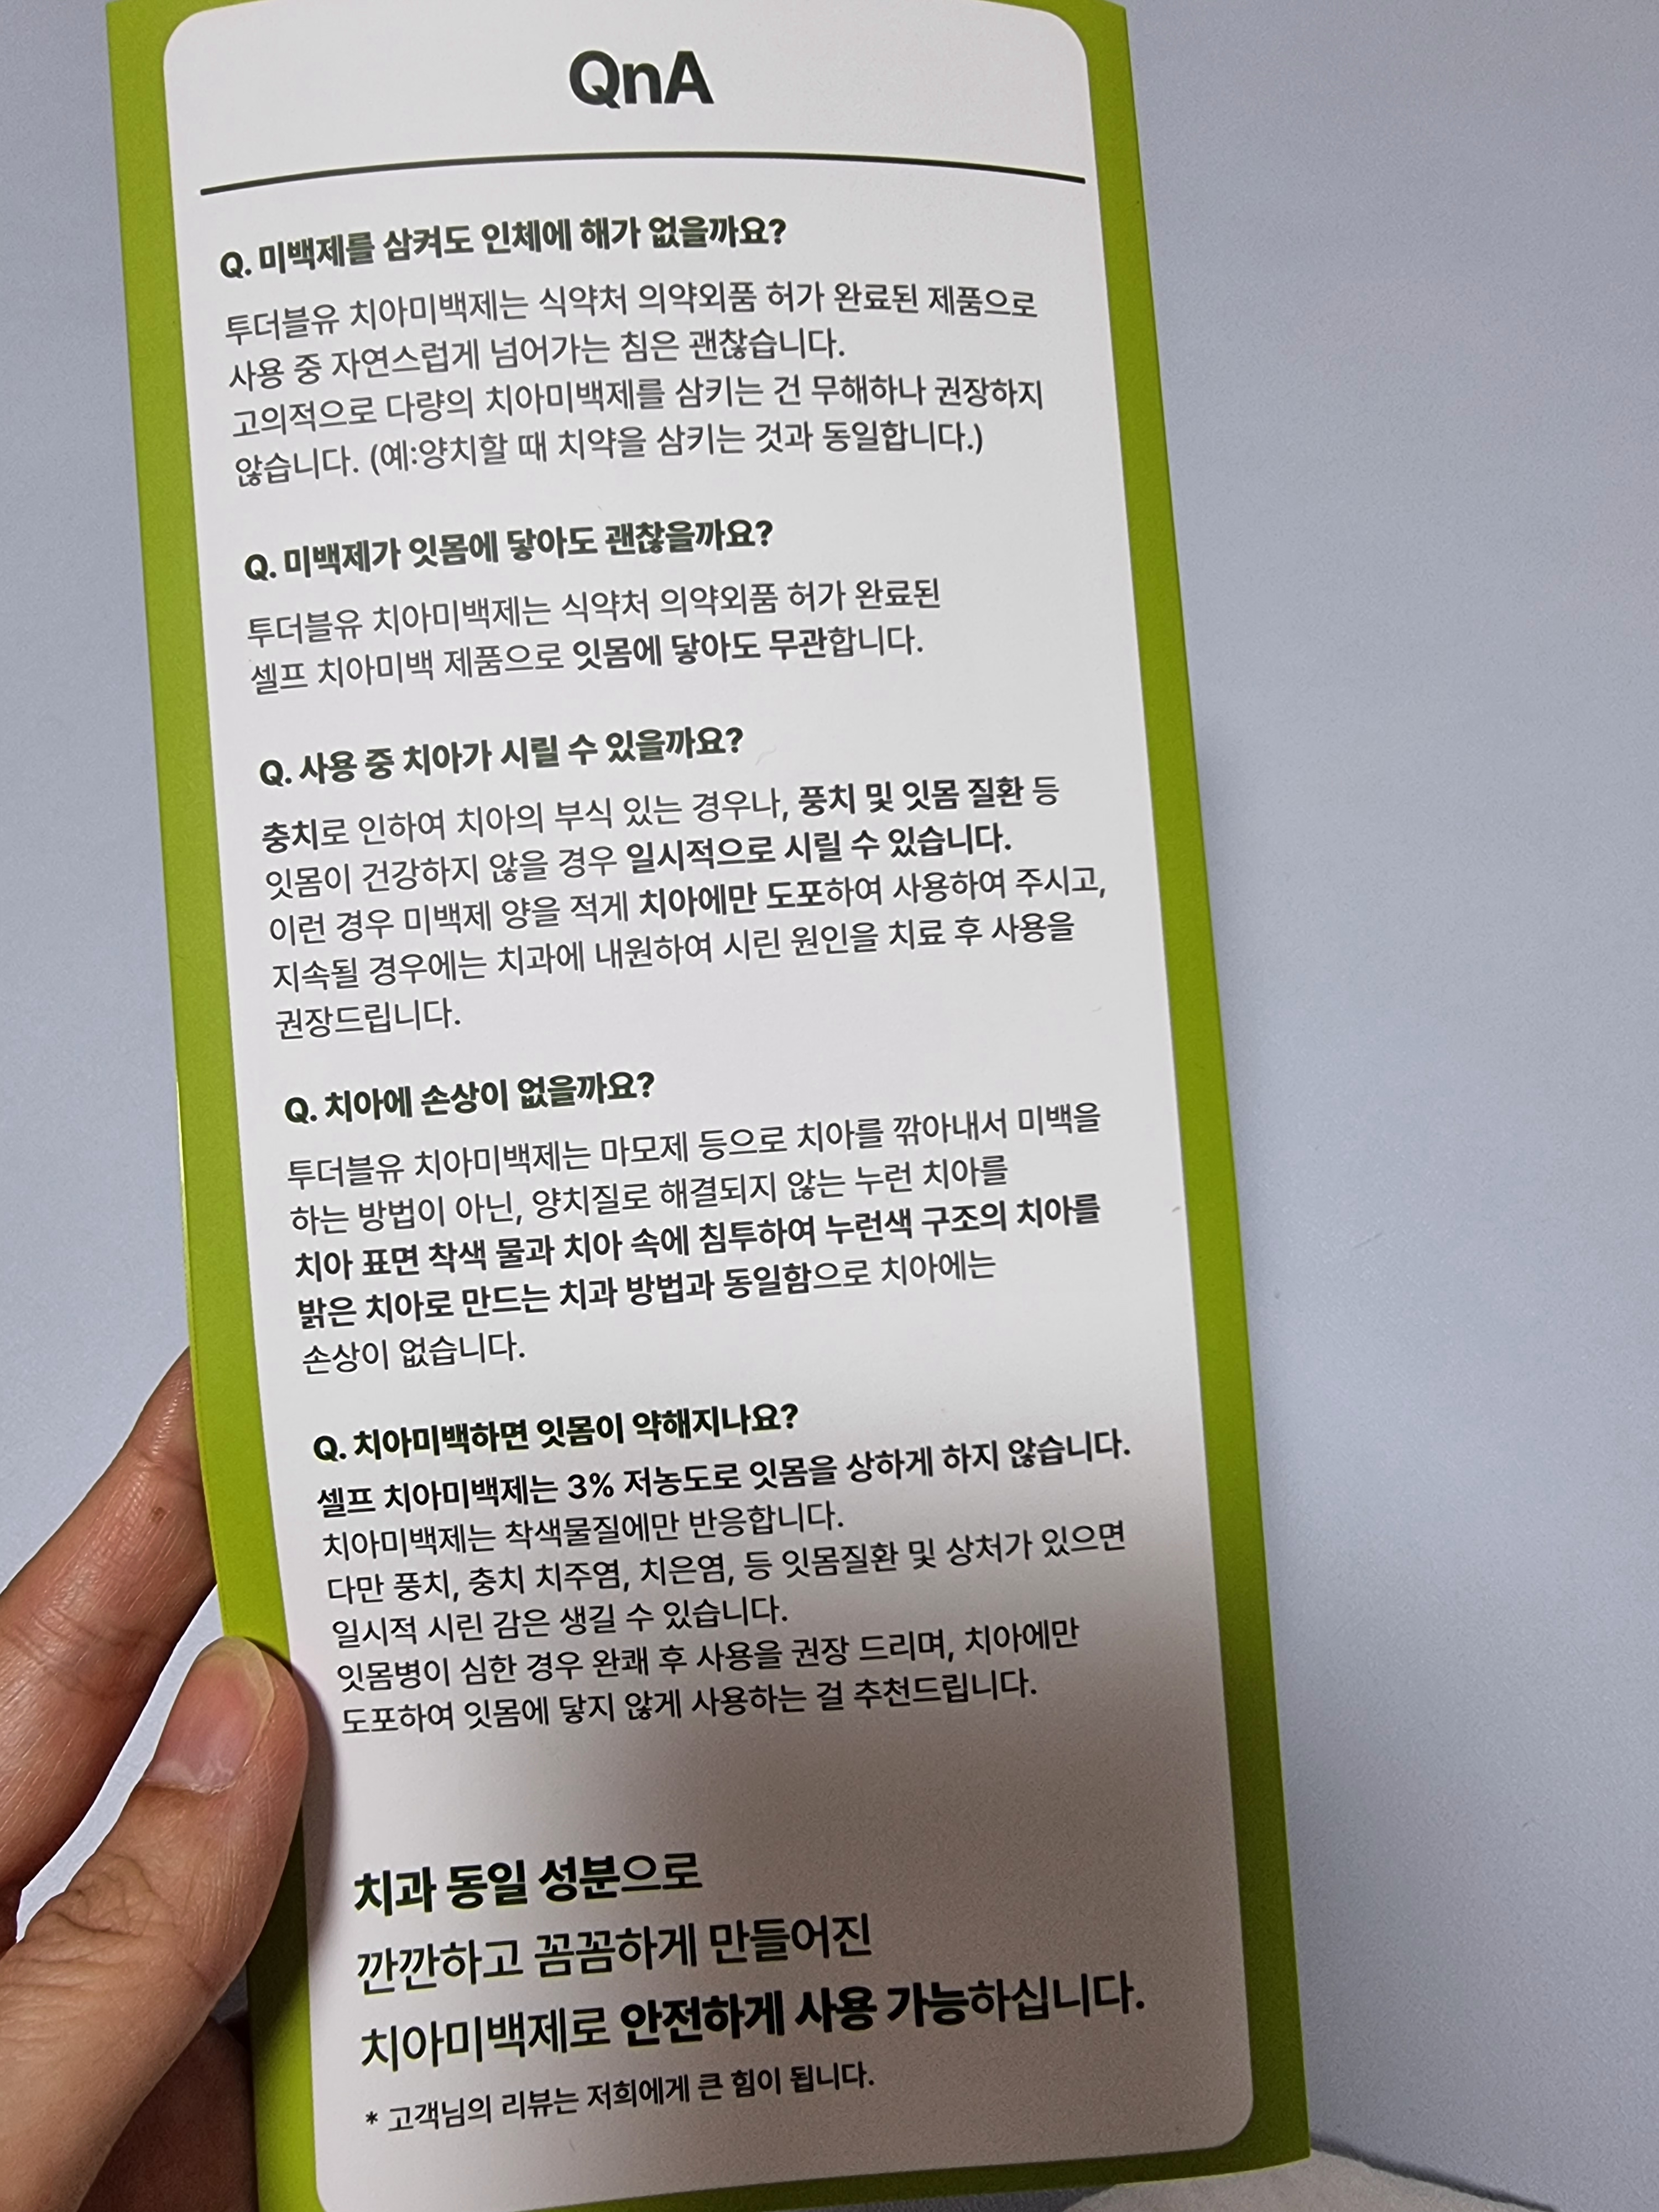 QnA
Q. 미백제를 삼켜도 인체에 해가 없을까요?
투더블유 치아미백제는 식약처 의약외품 허가 완료된 제품으로
사용 중 자연스럽게 넘어가는 침은 괜찮습니다.
고의적으로 다량의 치아미백제를 삼키는 건 무해하나 권장하지
않습니다. (예:양치할 때 치약을 삼키는 것과 동일합니다.)
Q. 미백제가 잇몸에 닿아도 괜찮을까요?
투더블유 치아미백제는 식약처 의약외품 허가 완료된
셀프 치아미백 제품으로 잇몸에 닿아도 무관합니다.
Q. 사용 중 치아가 시릴 수 있을까요?
충치로 인하여 치아의 부식 있는 경우나, 풍치 및 잇몸 질환 등
잇몸이 건강하지 않을 경우 일시적으로 시릴 수 있습니다.
이런 경우 미백제 양을 적게 치아에만 도포하여 사용하여 주시고,
지속될 경우에는 치과에 내원하여 시린 원인을 치료 후 사용을
권장드립니다.
Q. 치아에 손상이 없을까요?
투더블유 치아미백제는 마모제 등으로 치아를 깎아내서 미백을
하는 방법이 아닌, 양치질로 해결되지 않는 누런 치아를
치아 표면 착색 물과 치아 속에 침투하여 누런색 구조의 치아를
밝은 치아로 만드는 치과 방법과 동일함으로 치아에는
손상이 없습니다.
Q. 치아미백하면 잇몸이 약해지나요?
셀프 치아미백제는 3% 저농도로 잇몸을 상하게 하지 않습니다.
치아미백제는 착색물질에만 반응합니다.
다만 풍치, 충치 치주염, 치은염, 등 잇몸질환 및 상처가 있으면
일시적 시린 감은 생길 수 있습니다.
잇몸병이 심한 경우 완쾌 후 사용을 권장 드리며, 치아에만
도포하여 잇몸에 닿지 않게 사용하는 걸 추천드립니다.
치과 동일 성분으로
깐깐하고 꼼꼼하게 만들어진
치아미백제로 안전하게 사용 가능하십니다.
* 고객님의 리뷰는 저희에게 큰 힘이 됩니다.